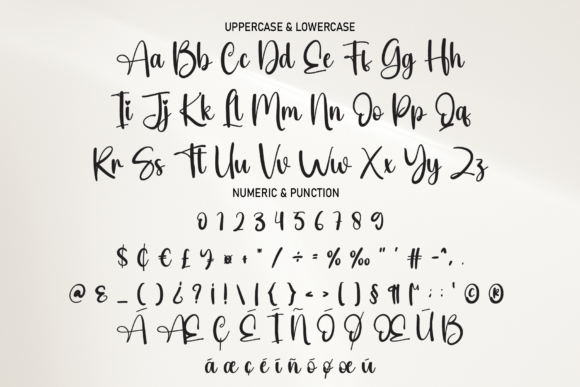 UPPERCASE & LOWERCASE
Aa Bb Cc Dd Ee Ff Gg Hh
Ii Jj Kk Ll Mm Nn Oo Pp Qq
Rr Ss Tt Uu Vv Ww Xx Yy Zz
NUMERIC & PUNCTION
0 1 2 3 4 5 6 7 8 9
$ ₵ € £ ¥ ¤ + * / ÷ = % ‰ " ' # - ^ , .
@ & _ ( ) ¿ ? ¡ ! \ | { } < > [ ] § ¶ : ; ' © ®
Á Æ Ç É Í Ñ Ó Ø Œ Ú B
á æ ç é í ñ ó ø œ ú